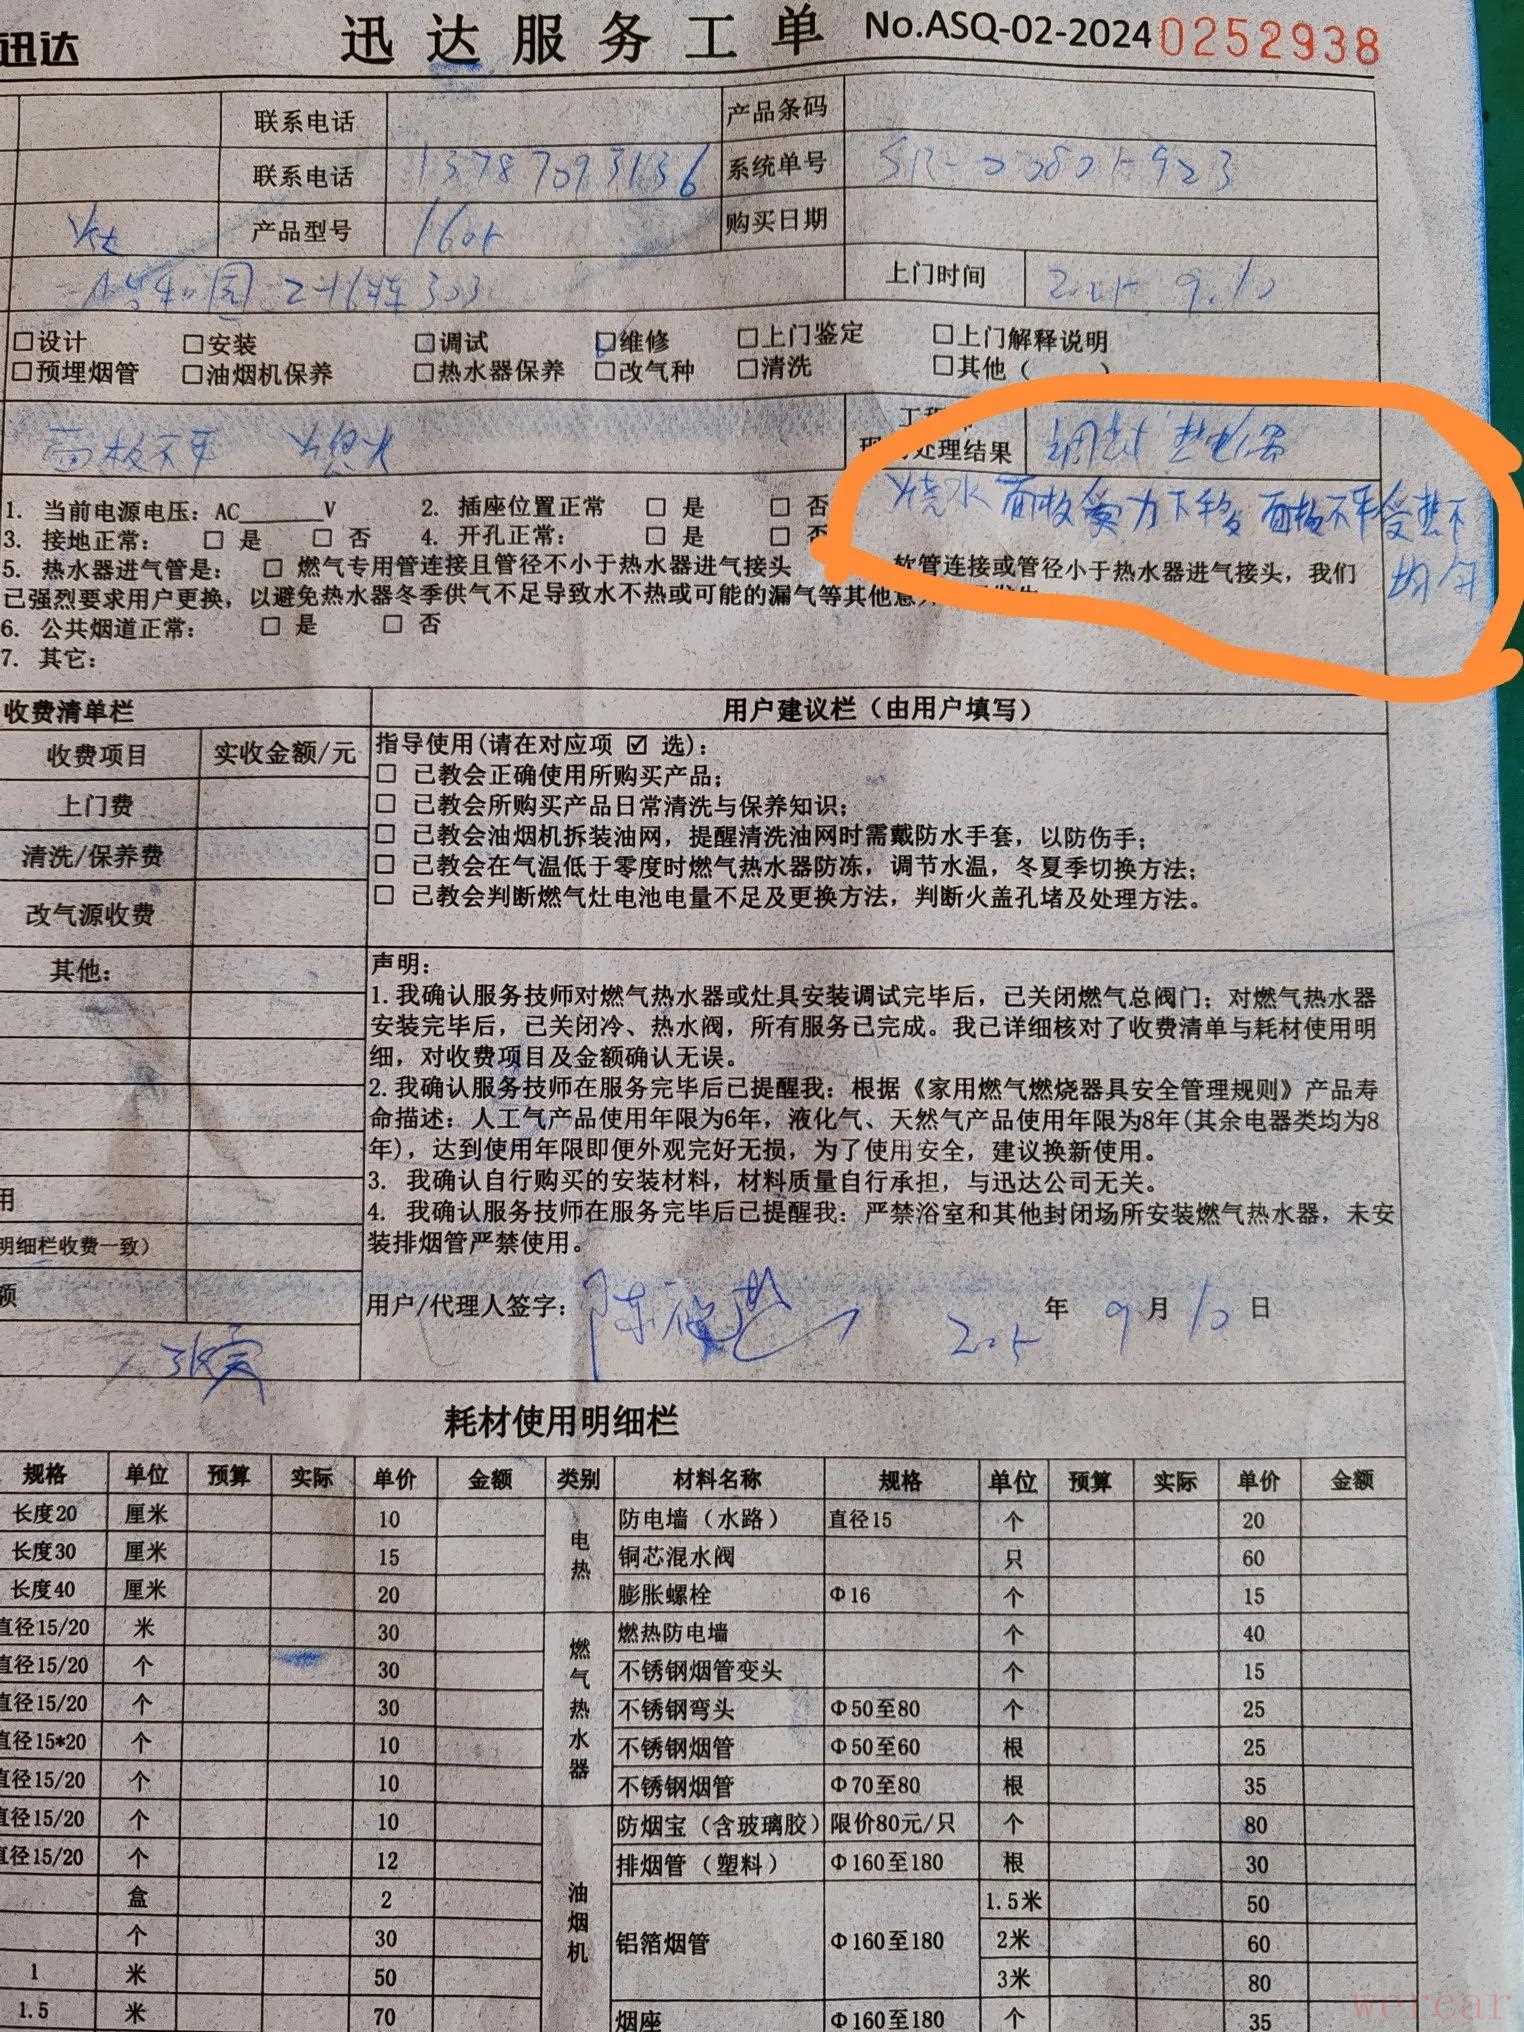 迅达 迅达服务工单 No.ASQ-02-2024 0252938
联系电话 产品条码
联系电话 13787093136 系统单号
产品型号 购买日期
303 上门时间 2025 9.10
□设计 □安装 □调试 □维修 □上门鉴定 □上门解释说明
□预埋烟管 □油烟机保养 □热水器保养 □改气种 □清洗 □其他( )
面板不平 处理结果 调试 热电偶
烧水 面板受力下移 面板不平受热不
均匀
1. 当前电源电压: AC______V 2. 插座位置正常 □ 是 □ 否
3. 接地正常: □ 是 □ 否 4. 开孔正常: □ 是 □ 否
5. 热水器进气管是: □ 燃气专用管连接且管径不小于热水器进气接头 软管连接或管径小于热水器进气接头，我们
已强烈要求用户更换，以避免热水器冬季供气不足导致水不热或可能的漏气等其他意
6. 公共烟道正常: □ 是 □ 否
7. 其它:
收费清单栏 用户建议栏（由用户填写）
收费项目 实收金额/元 指导使用(请在对应项 ☑ 选):
□ 已教会正确使用所购买产品;
上门费 □ 已教会所购买产品日常清洗与保养知识;
□ 已教会油烟机拆装油网，提醒清洗油网时需戴防水手套，以防伤手;
清洗/保养费 □ 已教会在气温低于零度时燃气热水器防冻，调节水温，冬夏季切换方法;
改气源收费 □ 已教会判断燃气灶电池电量不足及更换方法，判断火盖孔堵及处理方法。
其他: 声明:
1.我确认服务技师对燃气热水器或灶具安装调试完毕后，已关闭燃气总阀门；对燃气热水器
安装完毕后，已关闭冷、热水阀，所有服务已完成。我已详细核对了收费清单与耗材使用明
细，对收费项目及金额确认无误。
2.我确认服务技师在服务完毕后已提醒我：根据《家用燃气燃烧器具安全管理规则》产品寿
命描述：人工气产品使用年限为6年，液化气、天然气产品使用年限为8年(其余电器类均为8
年)，达到使用年限即便外观完好无损，为了使用安全，建议换新使用。
3. 我确认自行购买的安装材料，材料质量自行承担，与迅达公司无关。
用 4. 我确认服务技师在服务完毕后已提醒我：严禁浴室和其他封闭场所安装燃气热水器，未安
明细栏收费一致） 装排烟管严禁使用。
额 用户/代理人签字: 2025 年 9 月 10 日
耗材使用明细栏
规格 单位 预算 实际 单价 金额 类别 材料名称 规格 单位 预算 实际 单价 金额
长度20 厘米 10 电热 防电墙（水路） 直径15 个 20
长度30 厘米 15 铜芯混水阀 只 60
长度40 厘米 20 膨胀螺栓 Φ16 个 15
直径15/20 米 30 燃气热水器 燃热防电墙 个 40
直径15/20 个 30 不锈钢烟管变头 个 15
直径15/20 个 30 不锈钢弯头 Φ50至80 个 25
直径15*20 个 10 不锈钢烟管 Φ50至60 根 25
直径15/20 个 10 不锈钢烟管 Φ70至80 根 35
直径15/20 个 10 油烟机 防烟宝（含玻璃胶） 限价80元/只 个 80
直径15/20 个 12 排烟管（塑料） Φ160至180 根 30
盒 2 铝箔烟管 Φ160至180 1.5米 50
个 30 2米 60
1 米 50 3米 80
1.5 米 70 烟座 Φ160至180 个 35